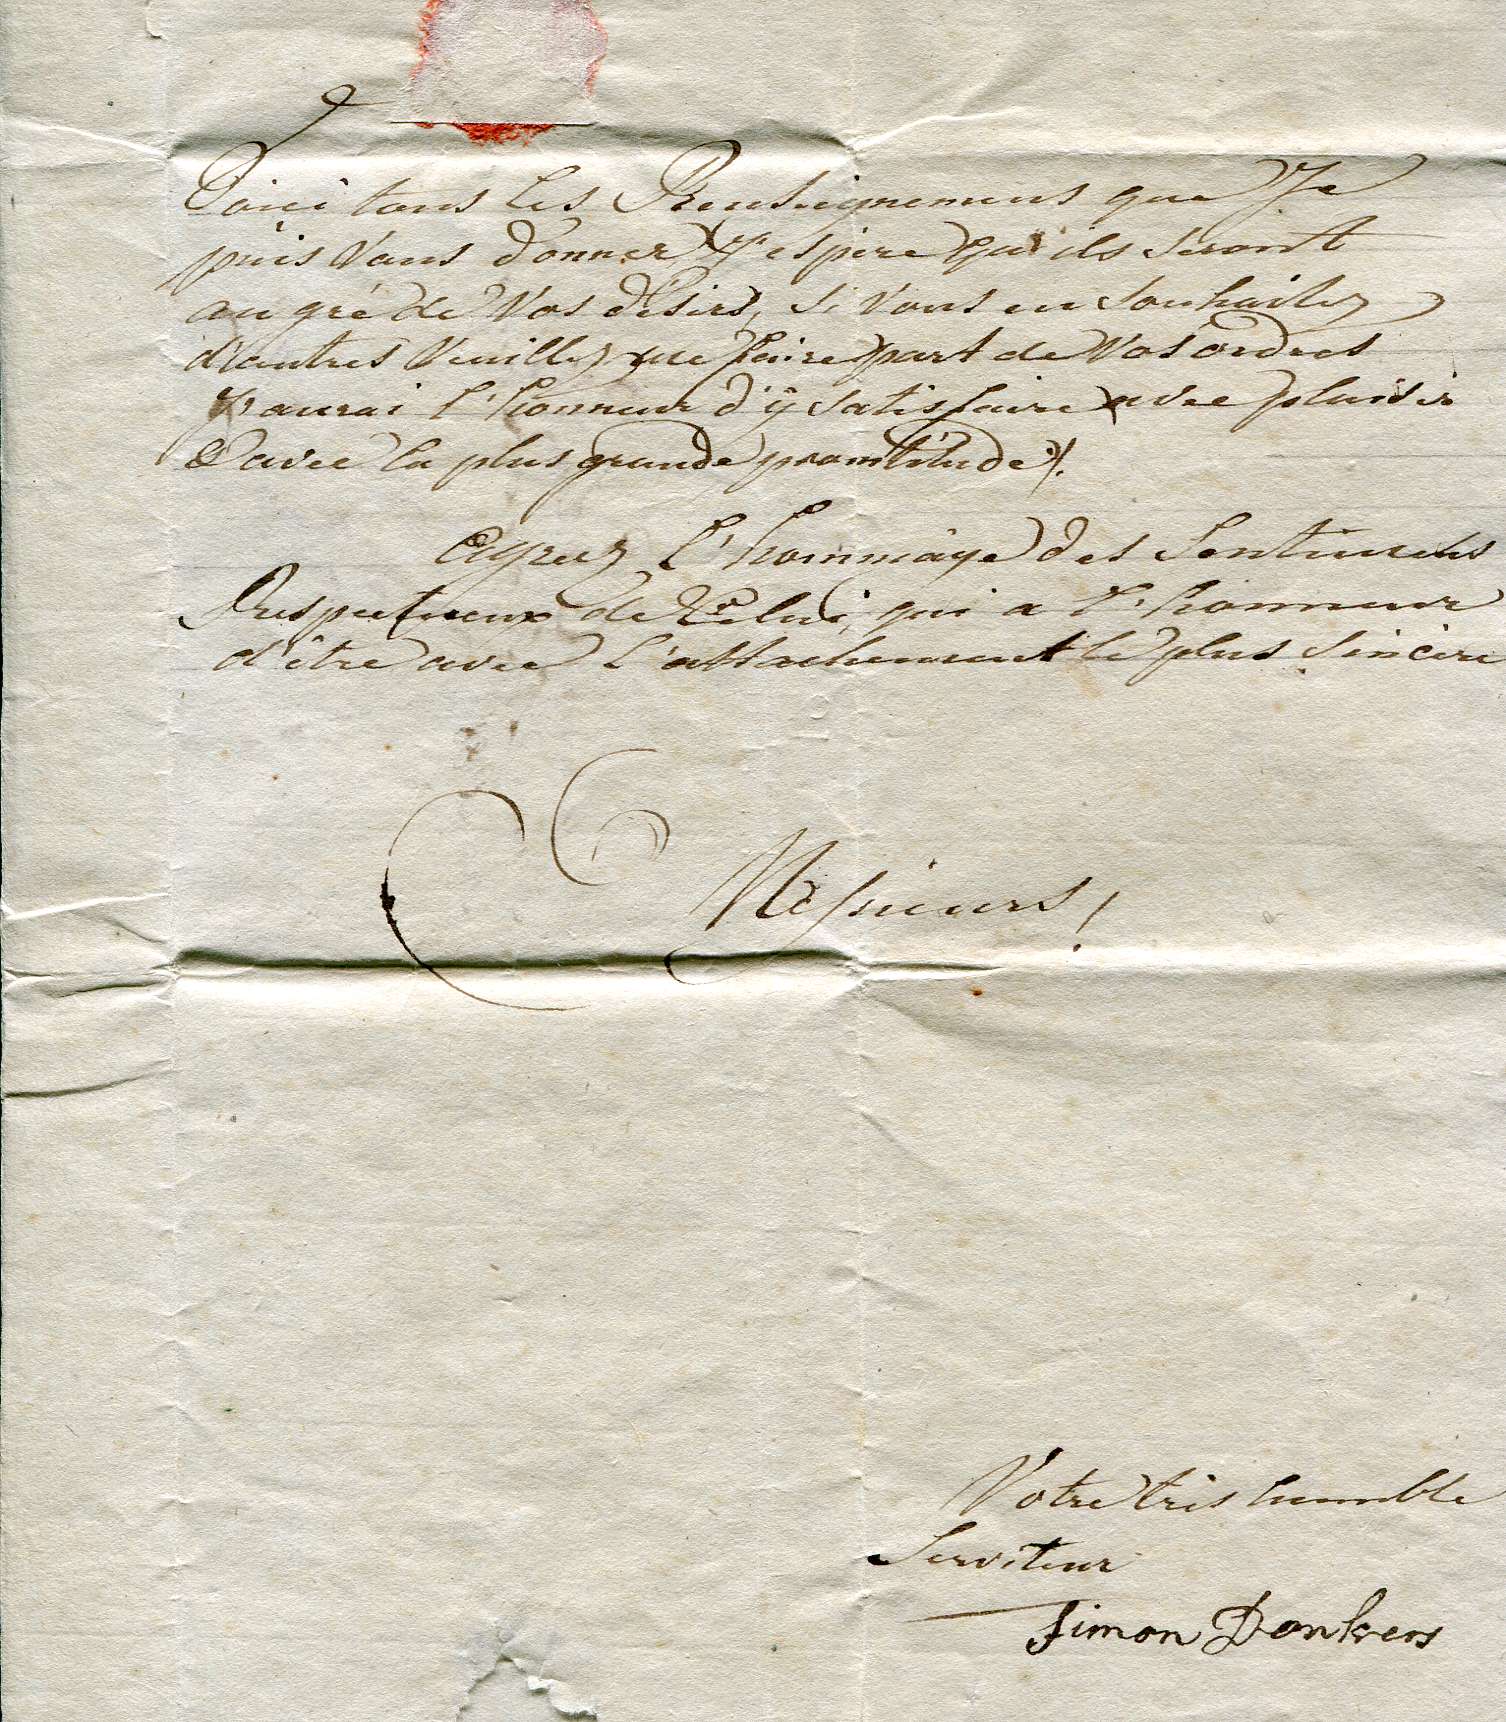 Voici tous les Renseignemens que Je
puis Vous donner, J'espere qu'ils seront
au gré de Vos désirs, Si Vous en Souhaitez
d'autres Veuillez me faire part de Vos ordres
J'aurai l'honneur d'ÿ satisfaire avec plaisir
& avec la plus grande promtitude /.
Agreez l'hommage des Sentimens
Respectueux de Celui, qui a l'honneur
d'être avec l'attachement le plus Sincere
Messieurs!
Votre très humble
Serviteur
Simon Donkers